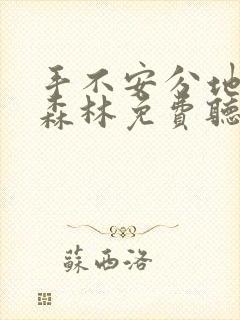 手不安分地
森林免費聽
蘇西洛